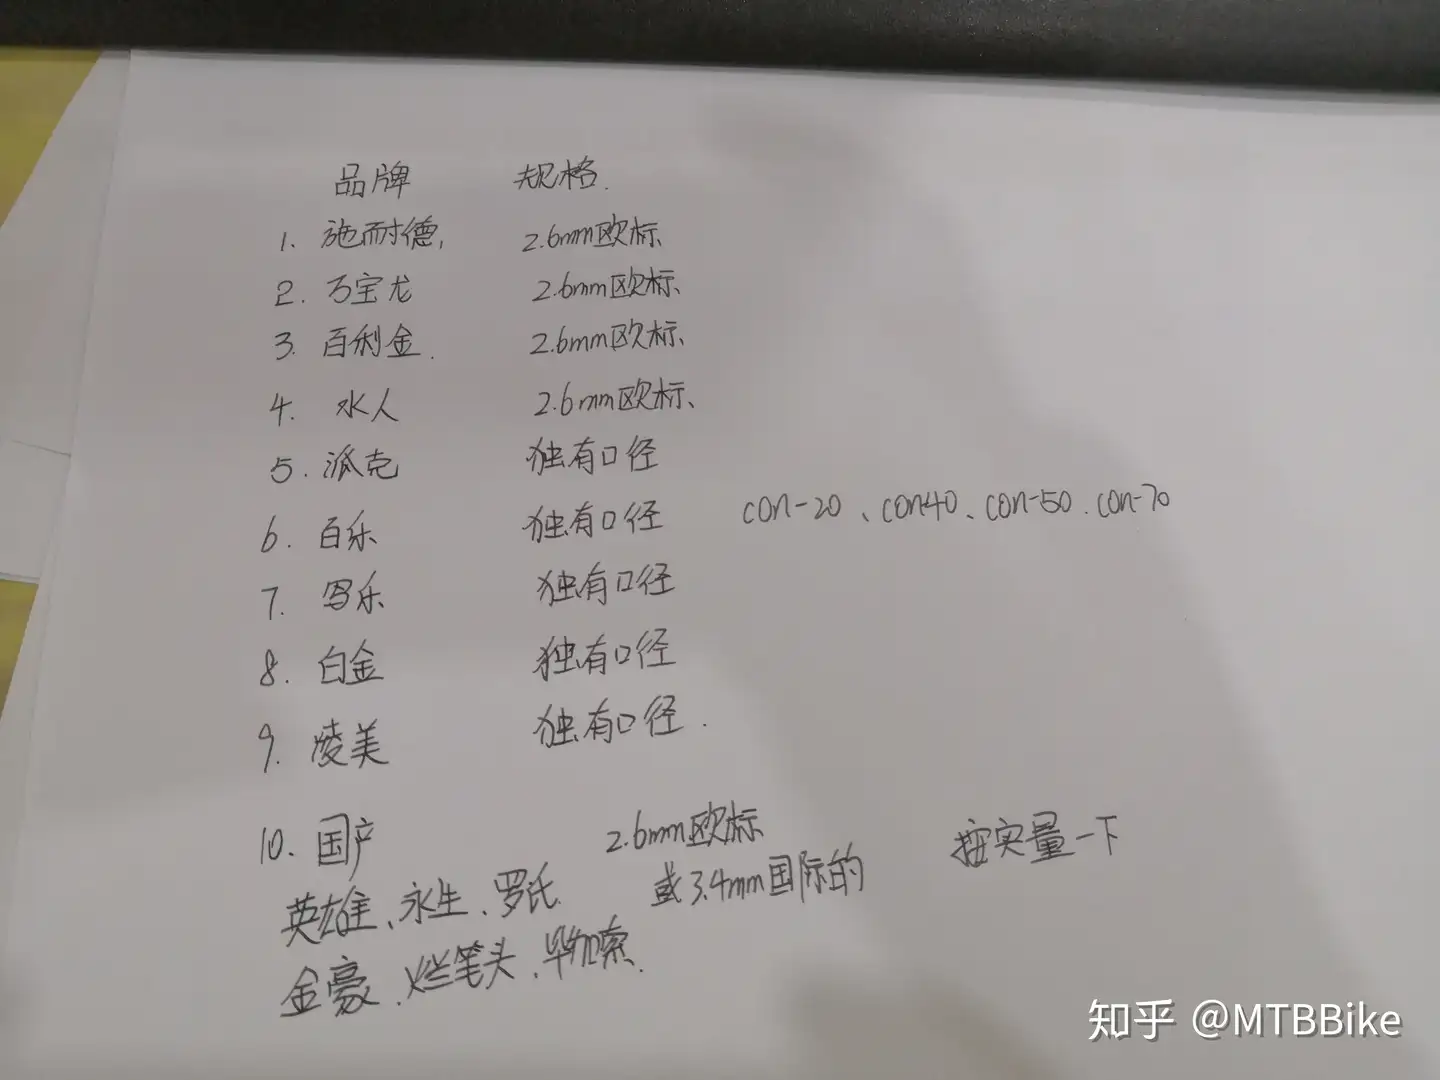 品牌 规格.
1. 施耐德, 2.6mm欧标
2. 万宝龙 2.6mm欧标
3. 百利金. 2.6mm欧标
4. 水人 2.6mm欧标、
5. 派克 独有口径
6. 百乐 独有口径 con-20、con40、con-50.con-70
7. 写乐 独有口径
8. 白金 独有口径
9. 凌美 独有口径.
10. 国产 2.6mm欧标
英雄、永生、罗氏 或3.4mm国际的 按实量一下
金豪、烂笔头、毕加索.
知乎 @MTBBike